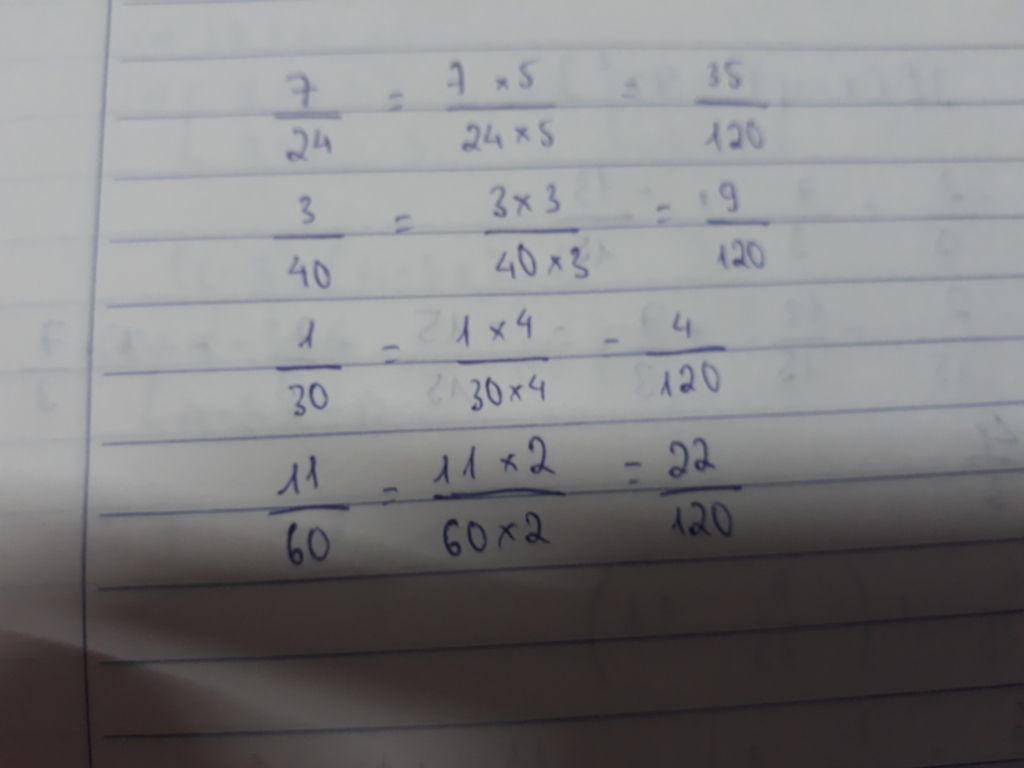 7/24 = 7 × 5 / 24 × 5 = 35/120
3/40 = 3 × 3 / 40 × 3 = 9/120
1/30 = 1 × 4 / 30 × 4 = 4/120
11/60 = 11 × 2 / 60 × 2 = 22/120